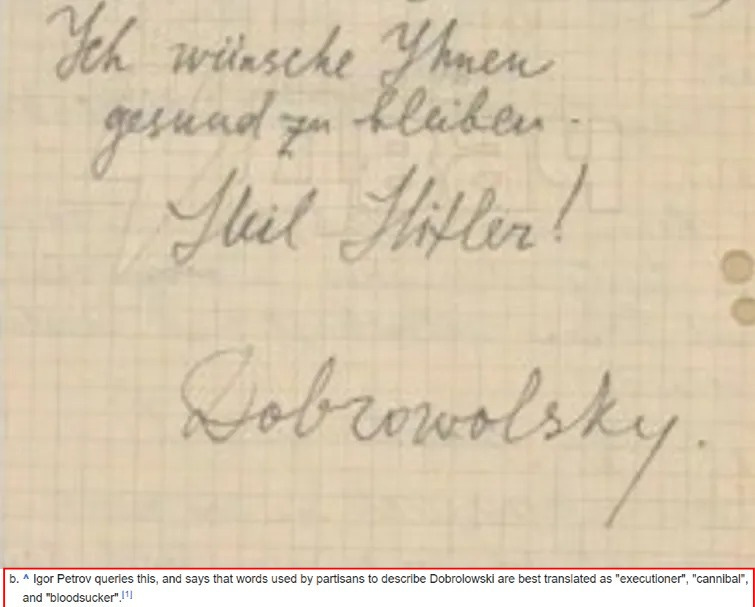 Ich wünsche Yhnen
gesund zu bleiben.
Heil Hitler!
Dobrowolsky.
b. ^ Igor Petrov queries this, and says that words used by partisans to describe Dobrolowski are best translated as "executioner", "cannibal",
and "bloodsucker".[1]